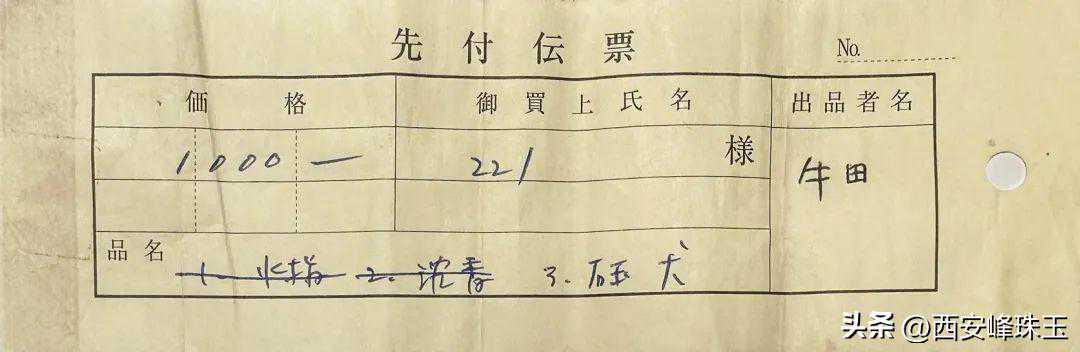 先付伝票
No.
価格 御買上氏名 出品者名
1000— 221 様 牛田
品名 2. 沈香 3. 石玉 犬
头条 @西安峰珠玉